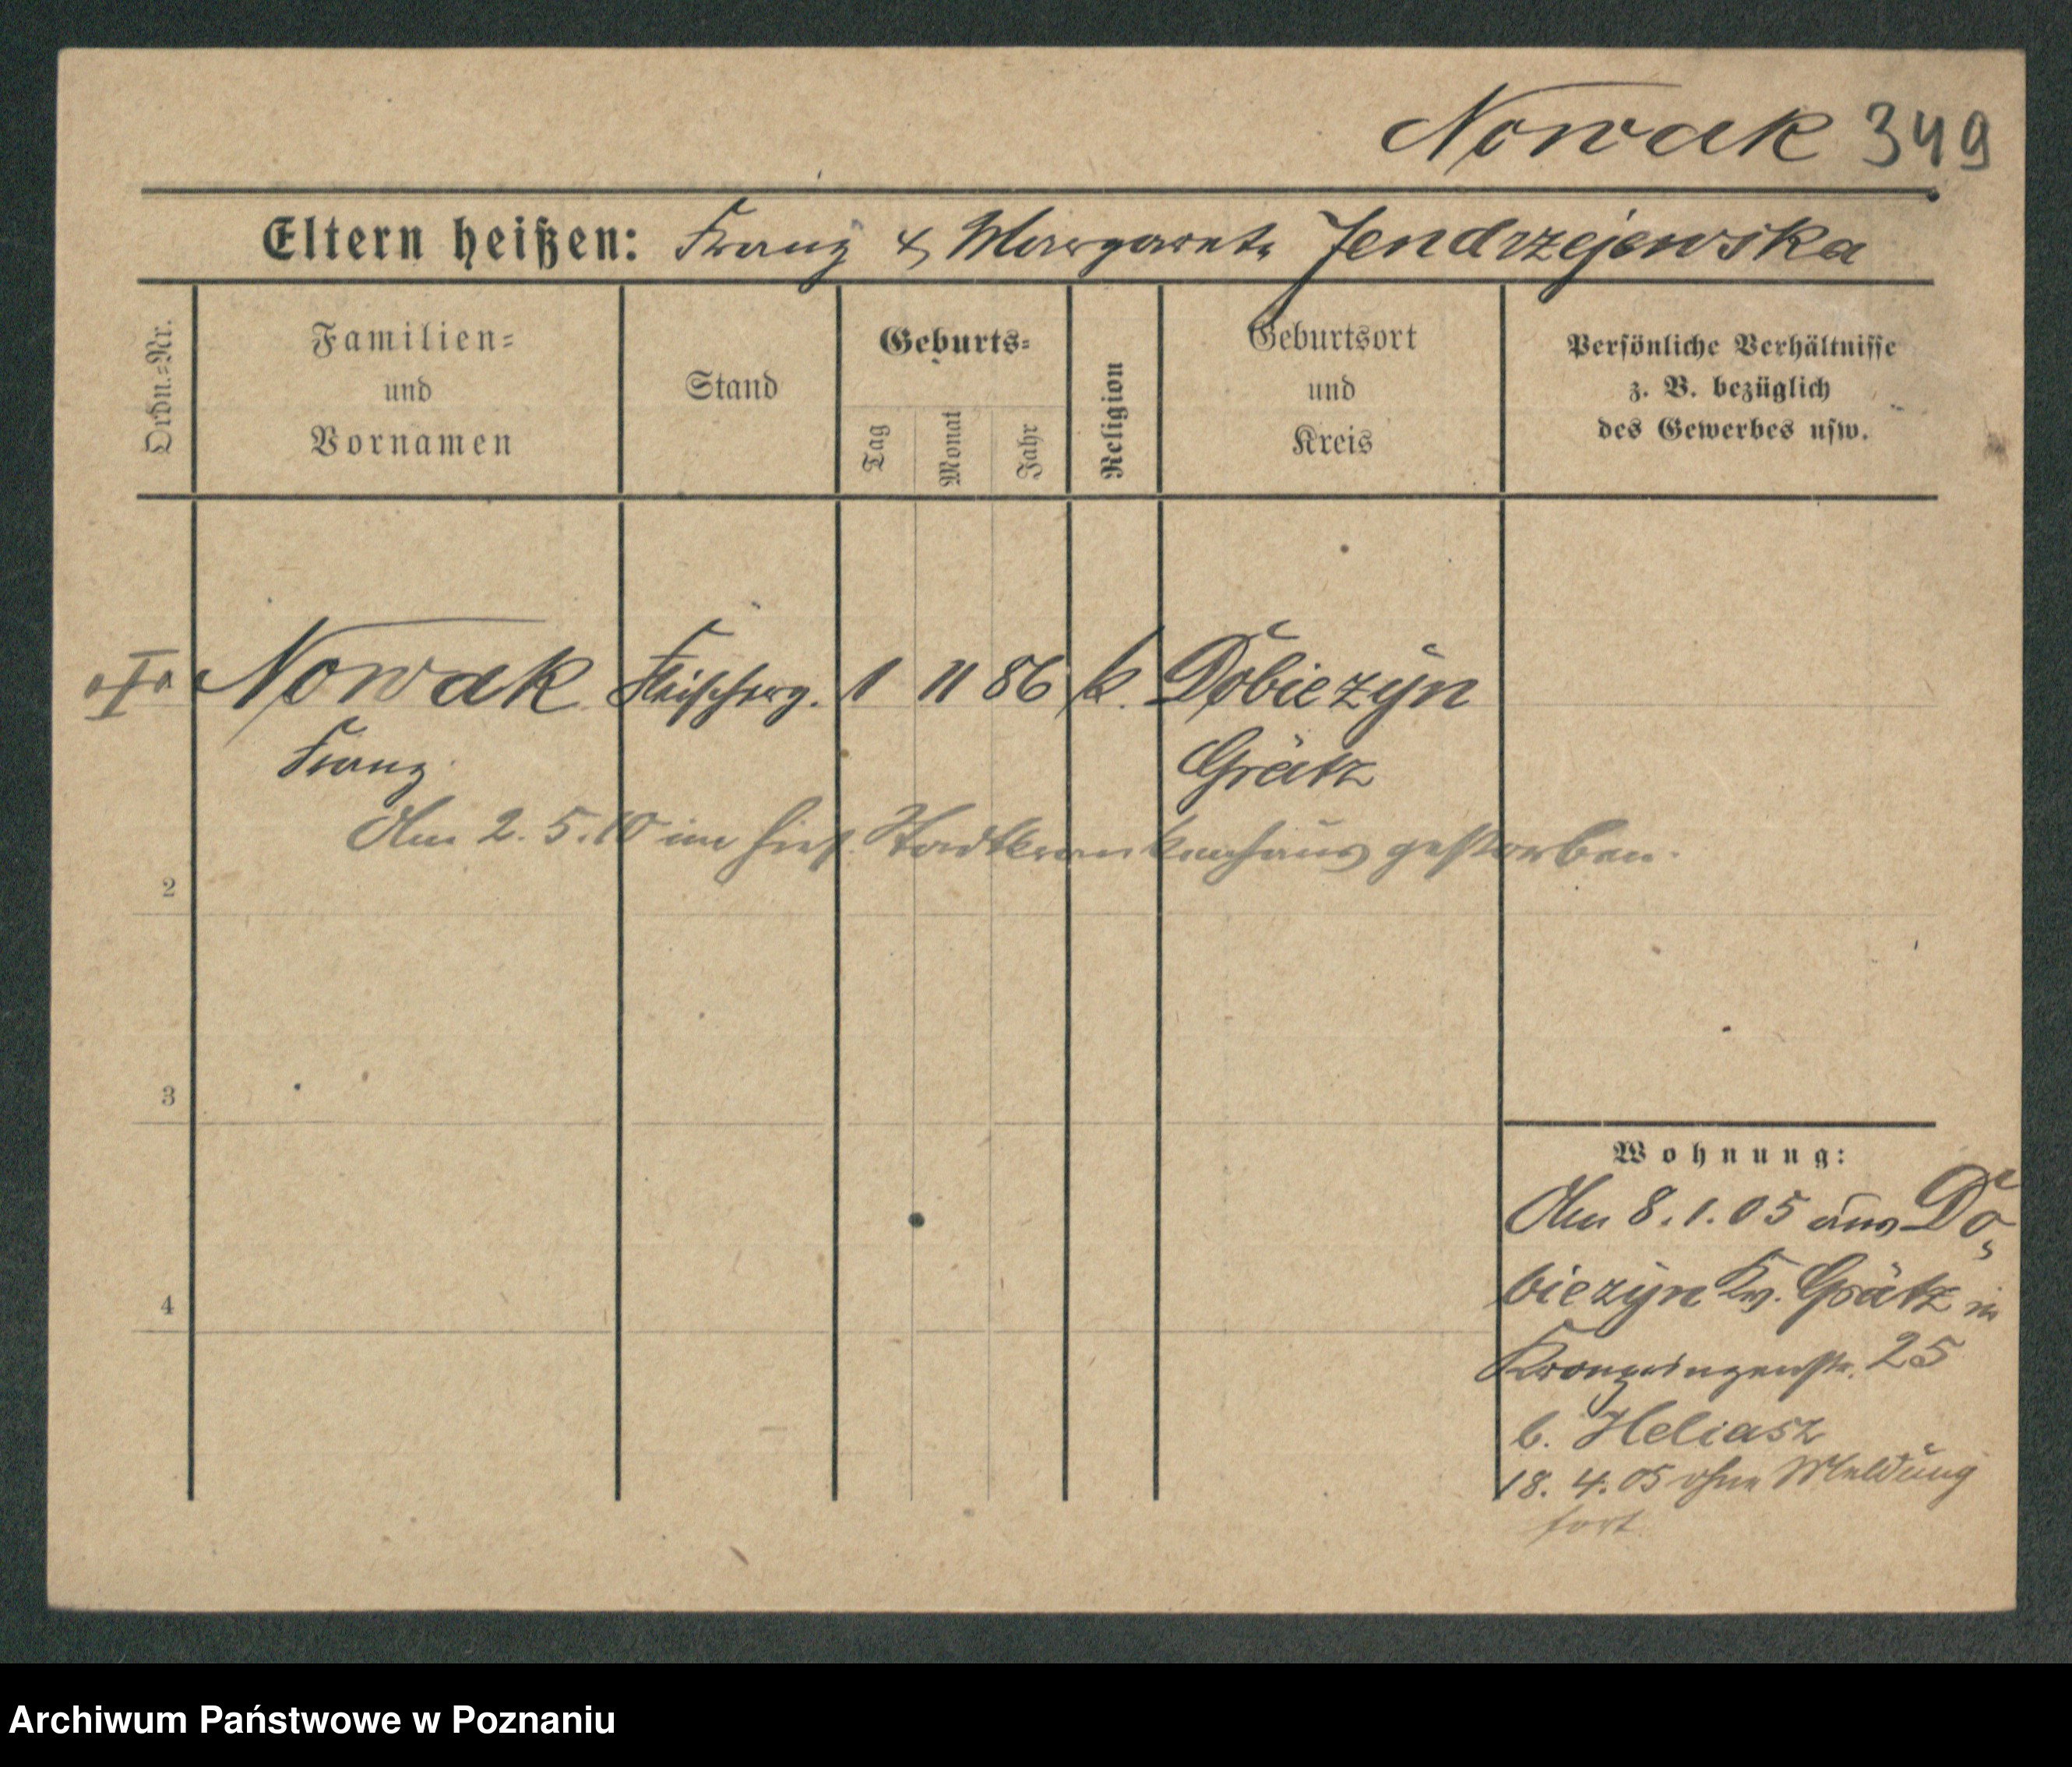 Nowak 349
Eltern heißen: Franz & Margarete Jendrzejewska
Ordn.=Nr.
Familien=
und
Vornamen
Stand
Geburts=
Tag
Monat
Jahr
Religion
Geburtsort
und
Kreis
Persönliche Verhältnisse
z. B. bezüglich
des Gewerbes usw.
I Nowak Fleischerg. 1 11 86 k. Dobiezyn
Franz Grätz
Am 2. 5. 10 im hies. Stadtkrankenhaus gestorben.
2
3
4
Wohnung:
Am 8. 1. 05 aus Do
biezyn Kr. Grätz in
Kronprinzenstr. 25
b. Heliasz
18. 4. 05 ohne Meldung
fort
Archiwum Państwowe w Poznaniu